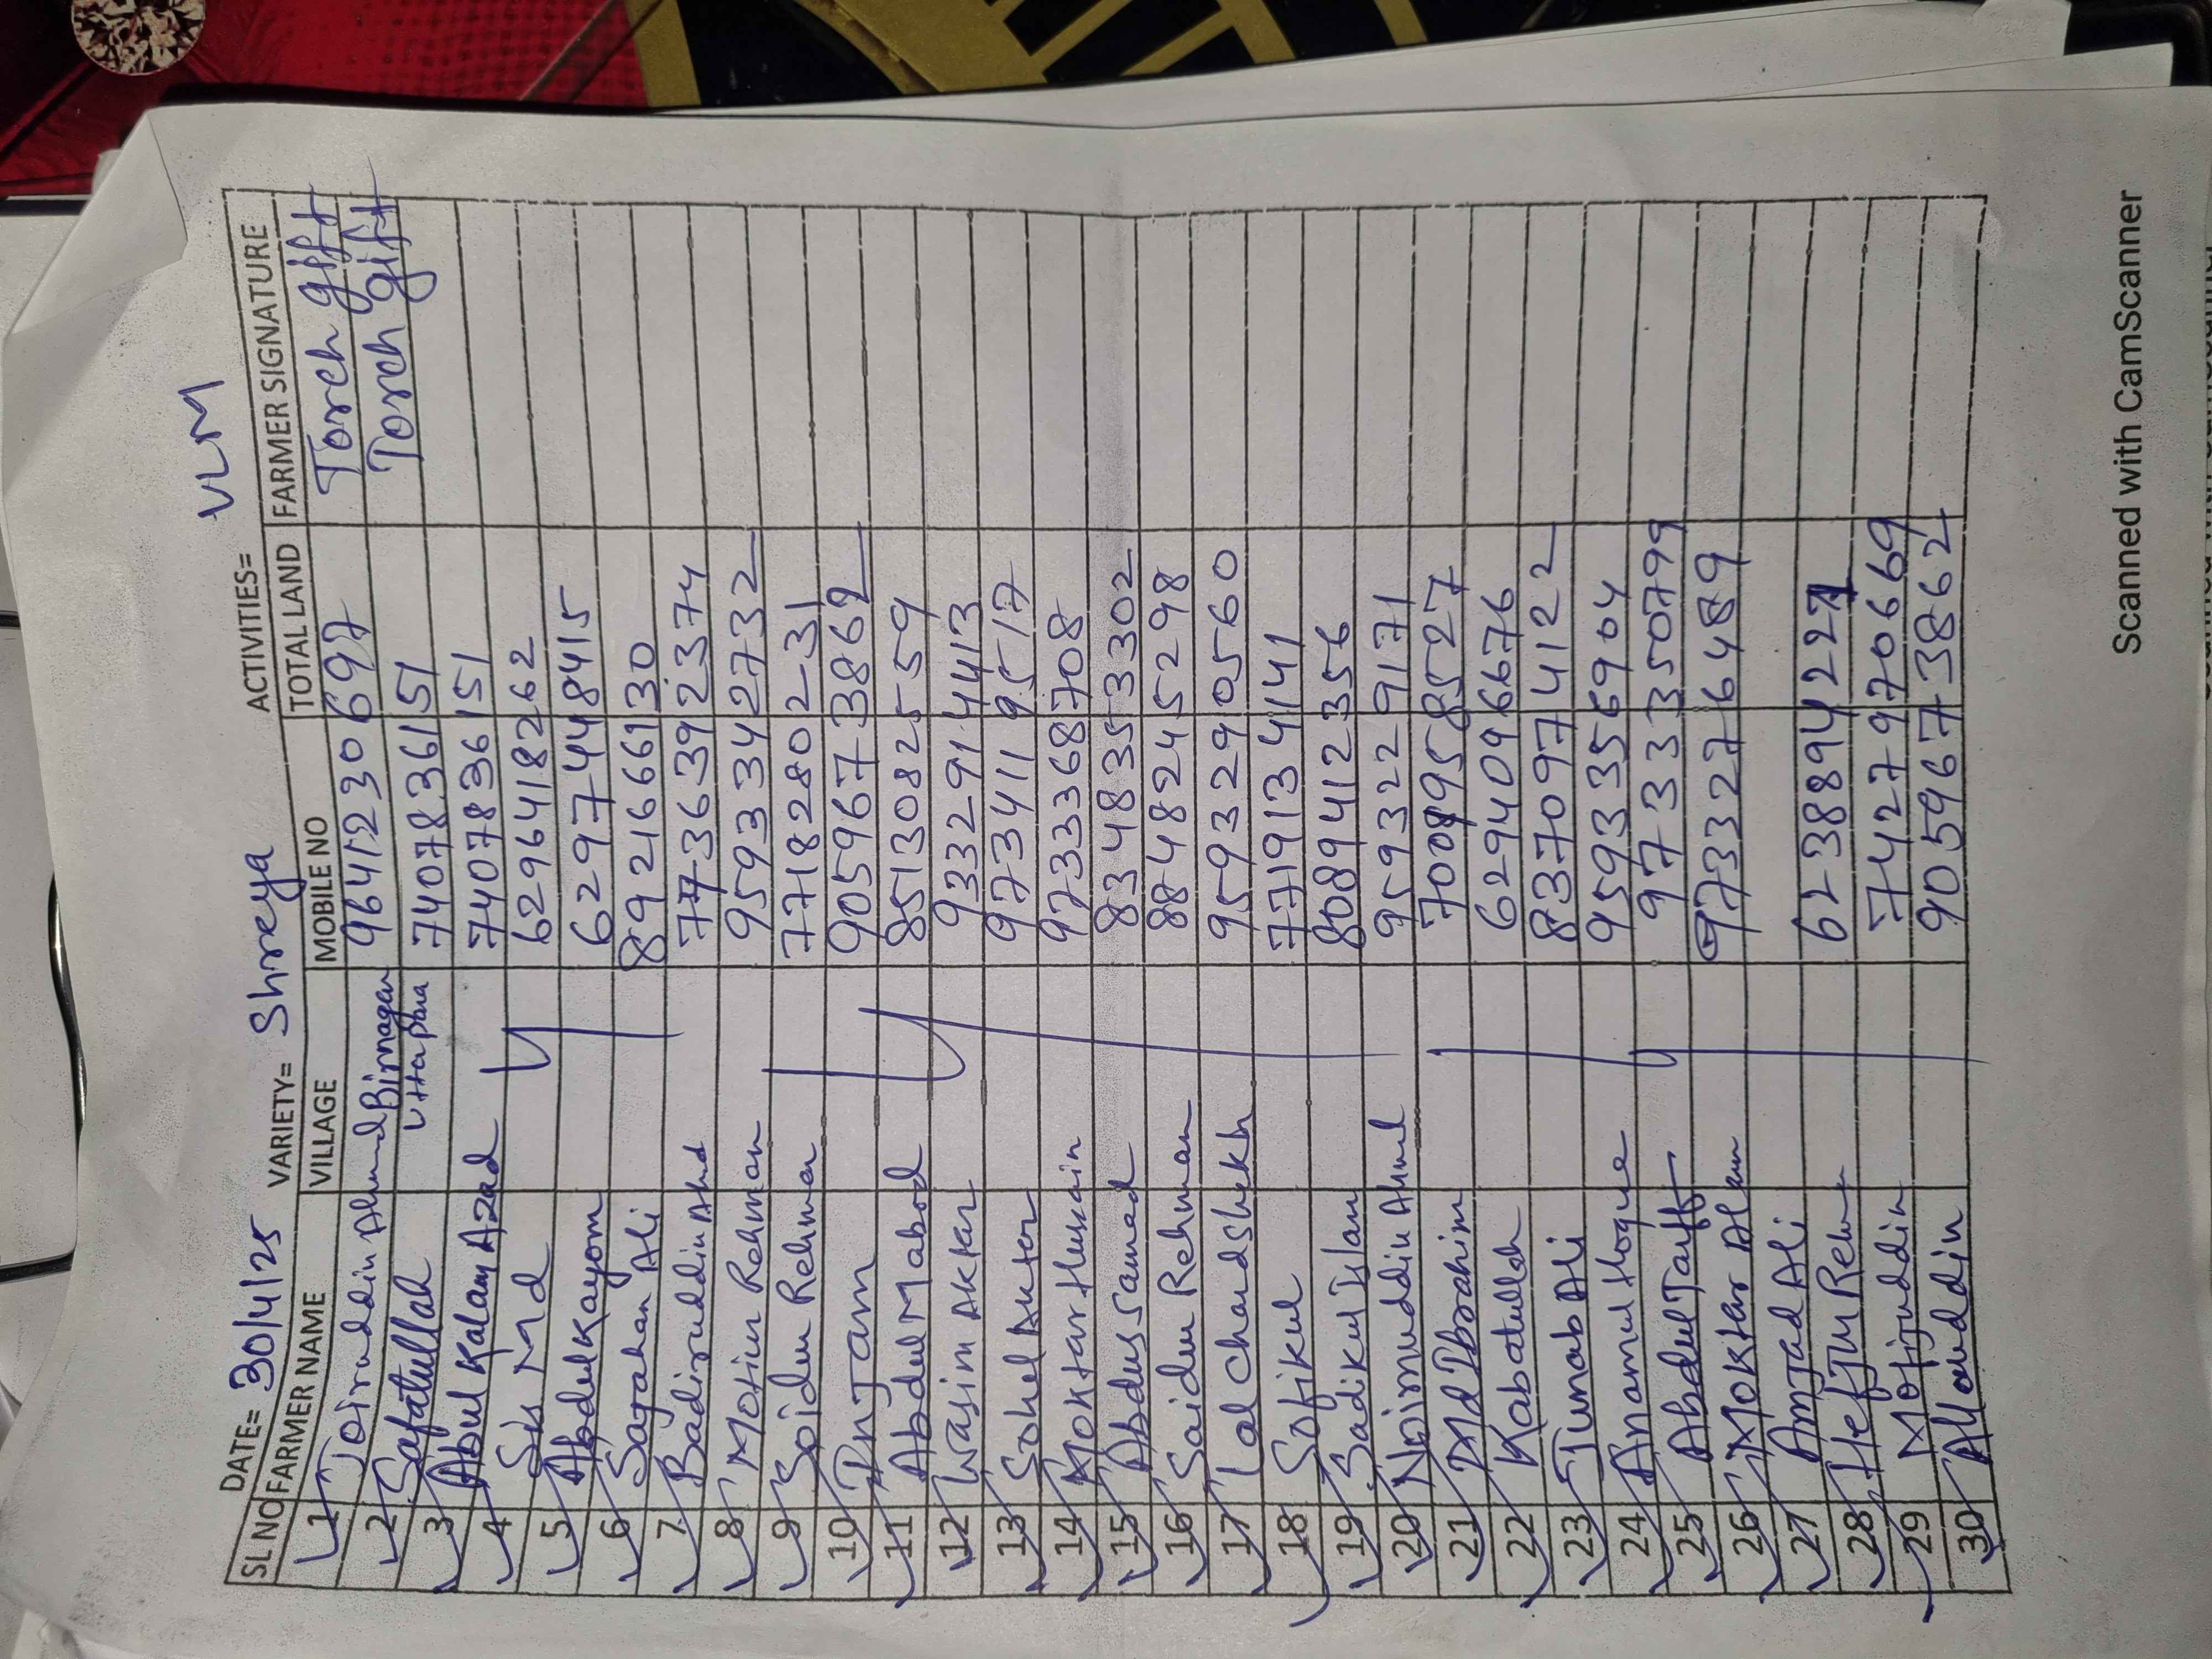 DATE= 30/4/25 VARIETY= Shreya ACTIVITIES= VLM
SL NO FARMER NAME VILLAGE MOBILE NO TOTAL LAND FARMER SIGNATURE
1 Joiruddin Ahmed Birnagar 9641230697 Torch gift
2 Safatullah Uttapara 7407836151 Torch gift
3 Abul Kalam Azad 7407836151
4 Sk Md 6296418262
5 Abdul Kayom 6297448415
6 Sajahan Ali 8921666130
7 Badiruddin Ahmd 7736392374
8 Motiur Rehman 9593342732
9 Soidur Rehman 77182802-31
10 9059673862
11 Abdul Mabod 8513082559
12 Wasim Akktar 9332914413
13 Sohel Aukter 9734119517
14 Moktar Hussain 9733368708
15 Abdus Samad 8348353302
16 Saidur Rehman 8848245298
17 Lal Chand Shekh 9593290560
18 Sofikul 7719134141
19 Sadikul Islam 8089412356
20 Noimuddin Ahmd 9593229171
21 Md Ibrahim 7008958527
22 Kabatullah 6294096676
23 Junab Ali 8370974122
24 Anamul Hoque 9593356904
25 Abdul 9733350799
26 Moktar Alam 9733276489
27 Amjad Ali
28 Hefjur Rehm 6238894227
29 Mofijuddin 7427970669
30 Allauddin 9059673862
Scanned with CamScanner